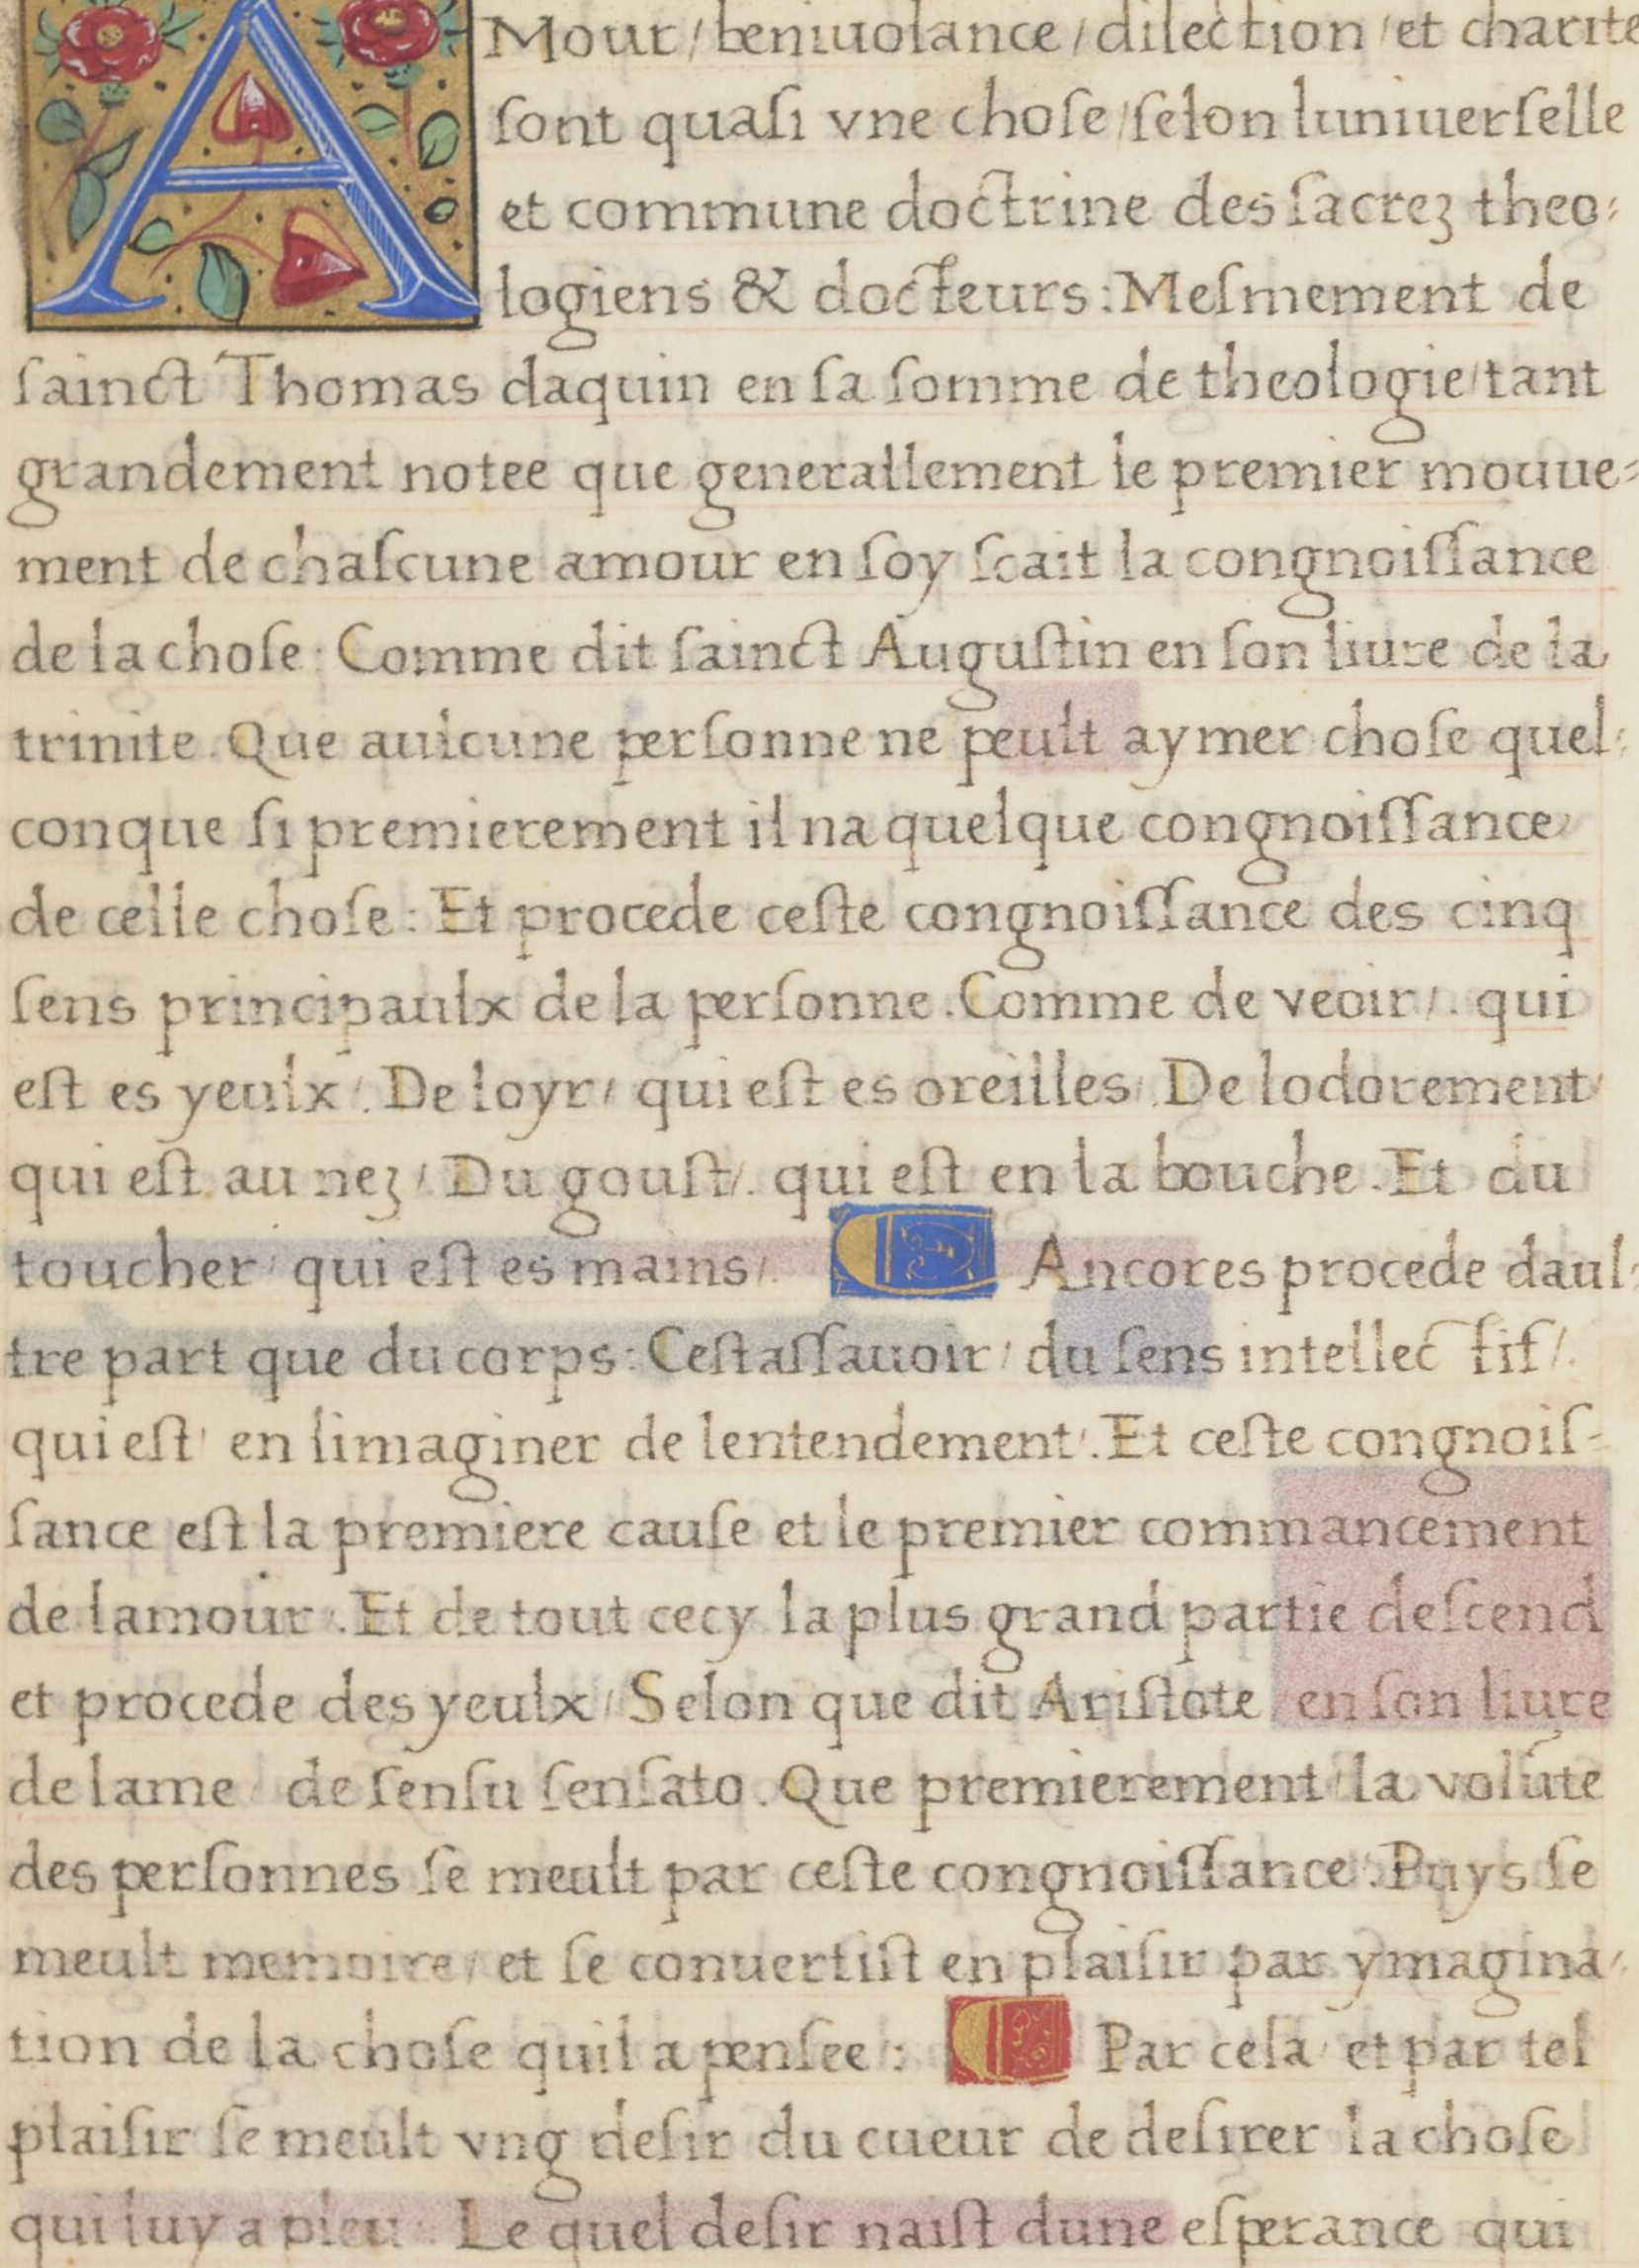 AMour / beniuolance / dilection / et charite
ſont quaſi vne choſe / ſelon luniuerſelle
et commune doctrine des ſacrez theo⸗
logiens & docteurs : Meſmement de
ſainct Thomas daquin en ſa ſomme de theologie / tant
grandement notee que generallement le premier mouue⸗
ment de chaſcune amour en ſoy ſcait la congnoiſſance
de la choſe : Comme dit ſainct Auguſtin en ſon liure de la
trinite . Que aulcune perſonne ne peult aymer choſe quel⸗
conque ſi premierement il na quelque congnoiſſance
de celle choſe : Et procede ceſte congnoiſſance des cinq
ſens principaulx de la perſonne . Comme de veoir / . qui
eſt es yeulx / . De loyr / qui eſt es oreilles / . De lodorement /
qui eſt au nez / Du gouſt / . qui eſt en la bouche . Et du
toucher / qui eſt es mains / . Ancores procede daul⸗
tre part que du corps : Ceſtaſſauoir / du ſens intellectif / .
qui eſt / en limaginer de lentendement / . Et ceſte congnoiſ⸗
ſance eſt la premiere cauſe et le premier commancement
de lamour / . Et de tout cecy la plus grand partie deſcend
et procede des yeulx / Selon que dit Ariſtote / en ſon liure
de lame / de ſenſu ſenſato . Que premierement / la volūte
des perſonnes ſe meult par ceſte congnoiſſance / . Puys ſe
meult memoire / et ſe conuertiſt en plaiſir par ymagina⸗
tion de la choſe quil a penſee / : Par cela / et par tel
plaiſir ſe meult vng deſir du cueur de deſirer la choſe
qui luy a pleu / . Le quel deſir naiſt dune eſperance qui